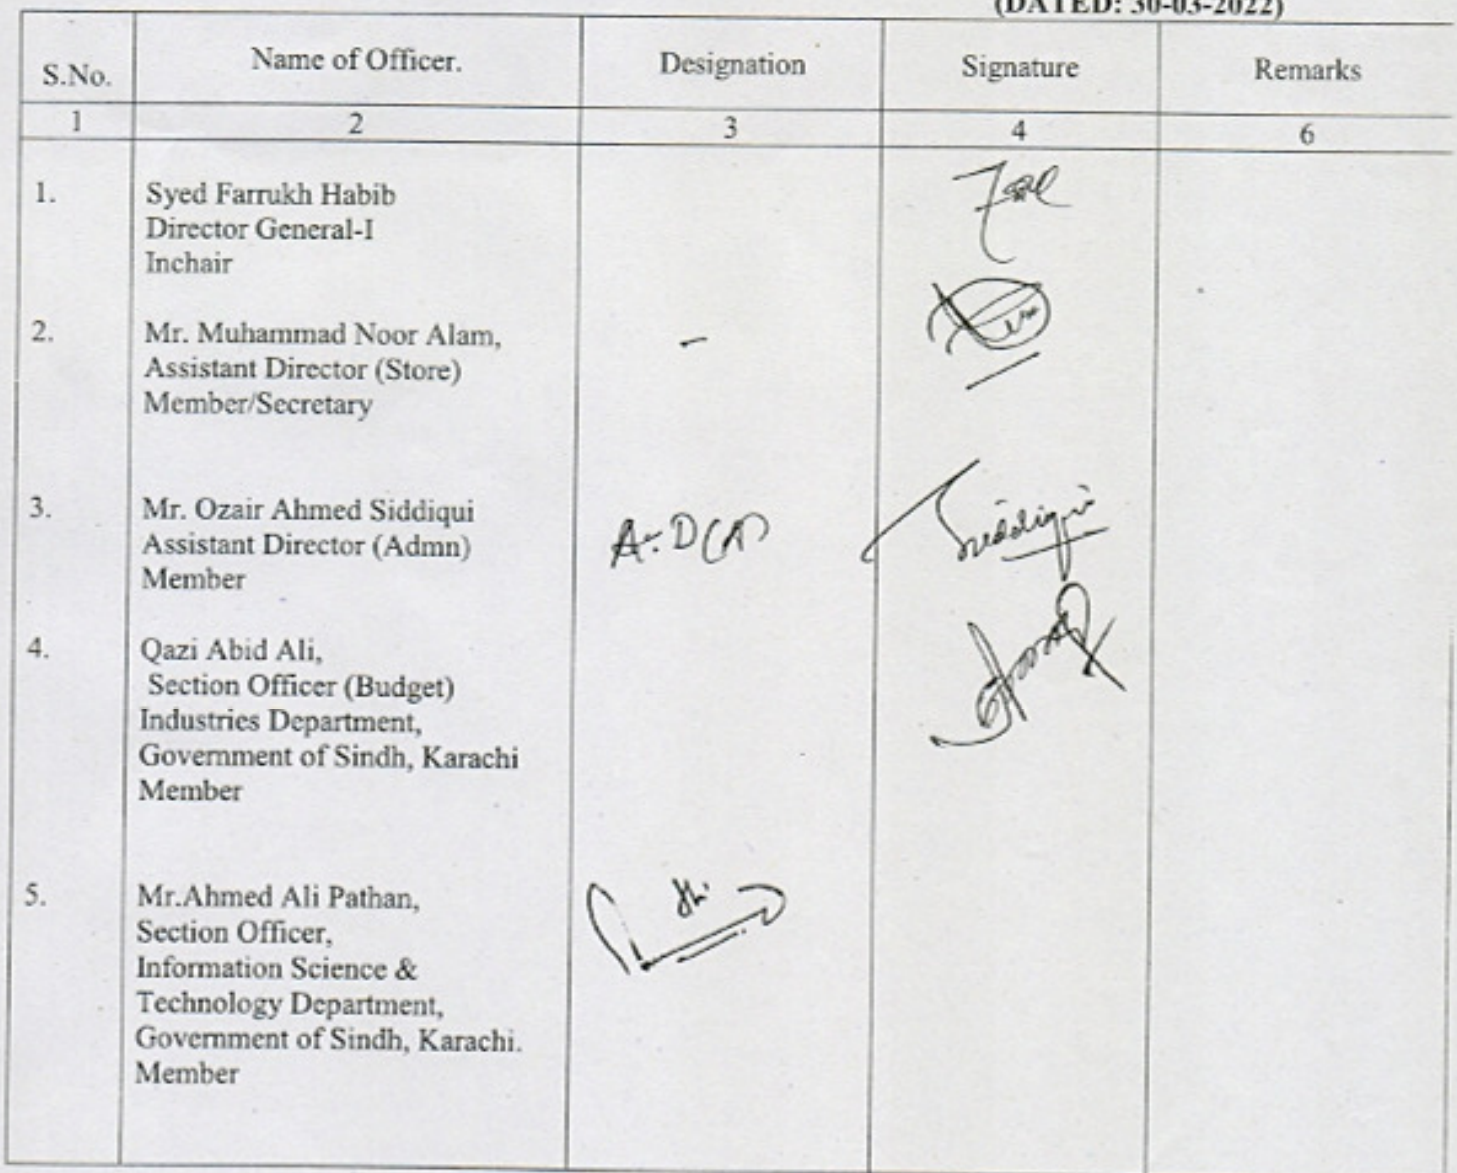 (DATED: 30-03-2022)
S.No. Name of Officer. Designation Signature Remarks
1 2 3 4 6
1. Syed Farrukh Habib
Director General-I
Inchair
2. Mr. Muhammad Noor Alam, -
Assistant Director (Store)
Member/Secretary
3. Mr. Ozair Ahmed Siddiqui
Assistant Director (Admn) A.D(A) Siddiqui
Member
4. Qazi Abid Ali,
Section Officer (Budget)
Industries Department,
Government of Sindh, Karachi
Member
5. Mr.Ahmed Ali Pathan,
Section Officer,
Information Science &
Technology Department,
Government of Sindh, Karachi.
Member